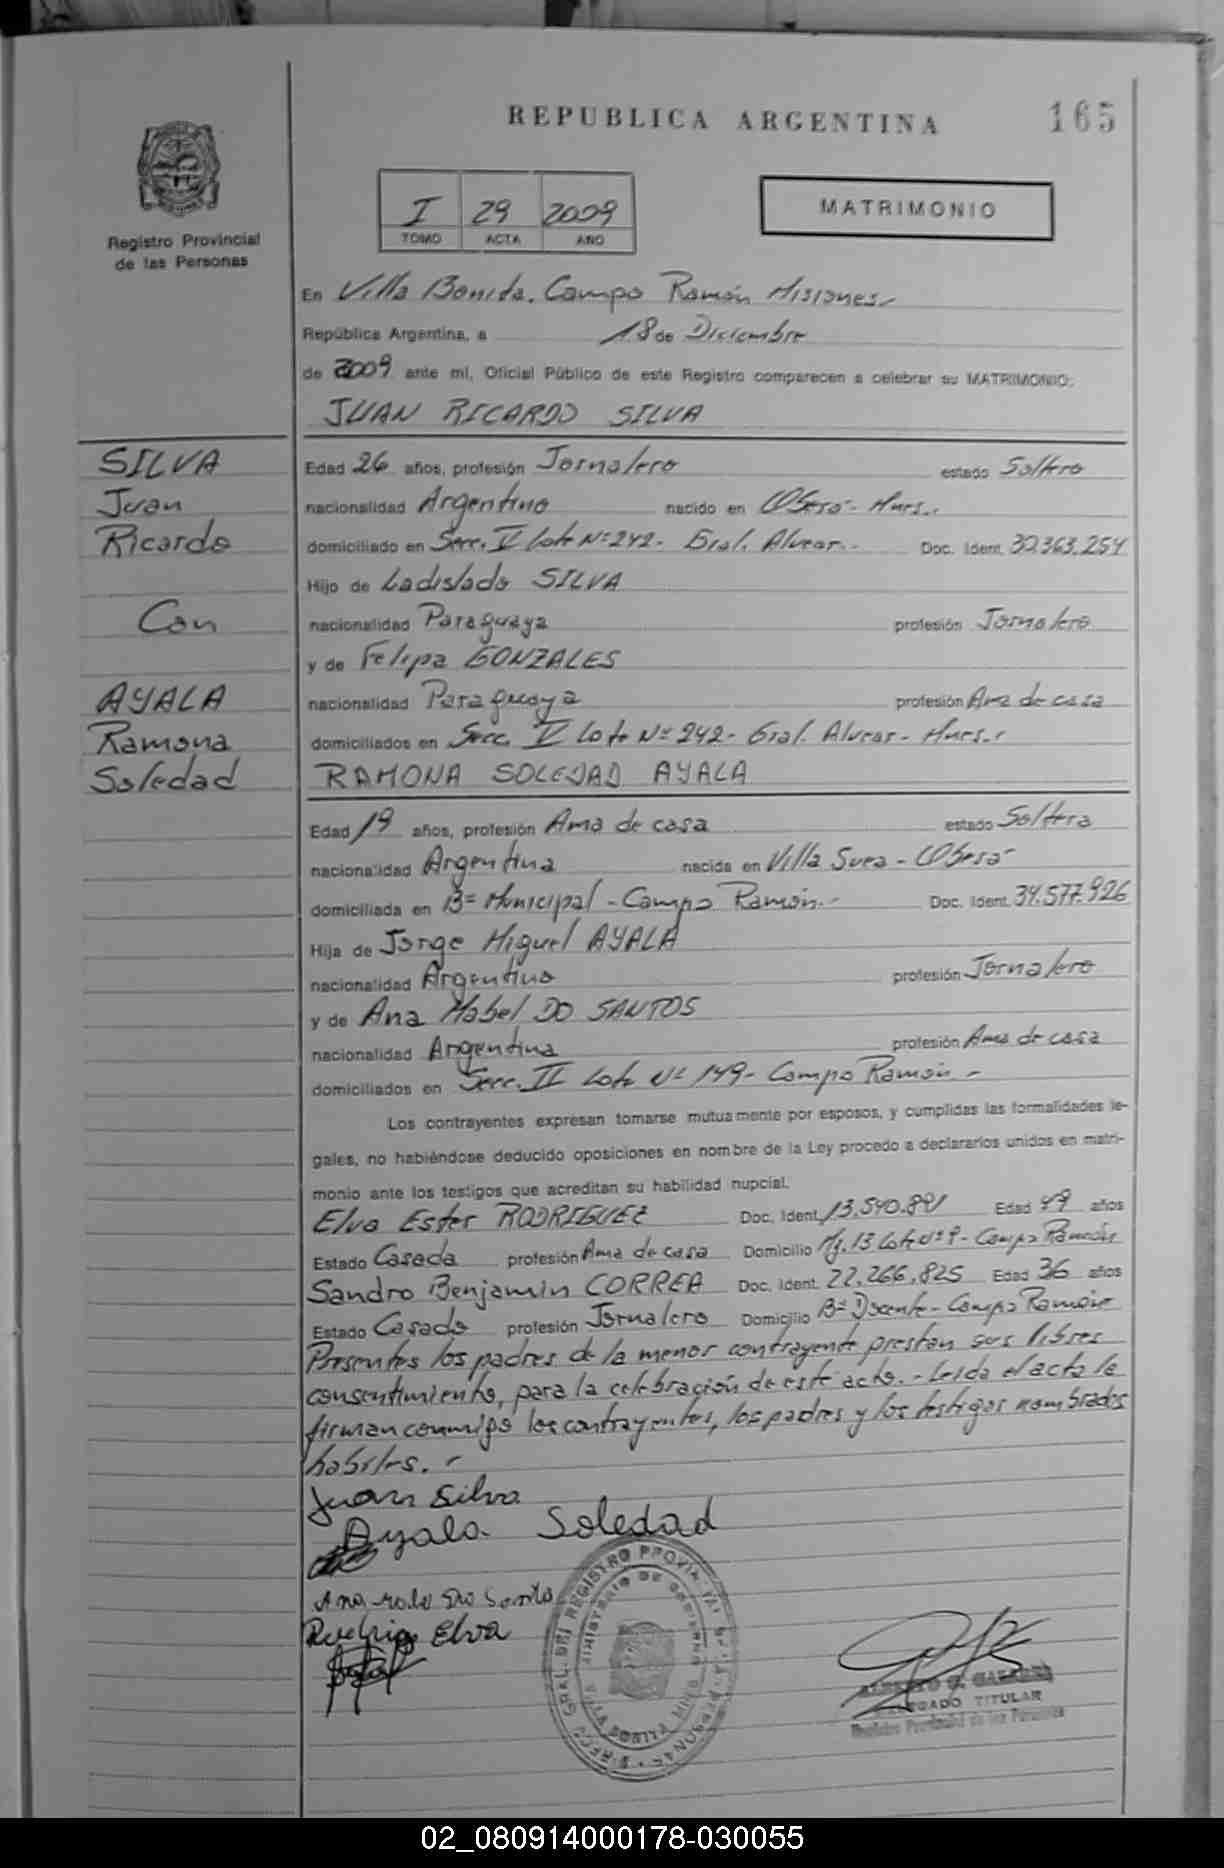 REPUBLICA ARGENTINA
165
Registro Provincial
de las Personas
I 29 2009
TOMO ACTA AÑO
MATRIMONIO
En Villa Bonita. Campo Ramón Misiones.-
República Argentina, a 18 de Diciembre
de 2009 ante mí, Oficial Público de este Registro comparecen a celebrar su MATRIMONIO:
JUAN RICARDO SILVA
SILVA
Juan
Ricardo
Con
AYALA
Ramona
Soledad
Edad 26 años, profesión Jornalero estado Soltero
nacionalidad Argentino nacido en Oberá - Mnes.-
domiciliado en Secc. V Lote Nº 242- Gral. Alvear.- Doc. Ident. 30.363.254
Hijo de Ladislado SILVA
nacionalidad Paraguaya profesión Jornalero
y de Felipa GONZALES
nacionalidad Paraguaya profesión Ama de casa
domiciliados en Secc. V Lote Nº 242- Gral. Alvear- Mnes.-
RAMONA SOLEDAD AYALA
Edad 19 años, profesión Ama de casa estado Soltera
nacionalidad Argentina nacida en Villa Svea - Oberá-
domiciliada en Bº Municipal - Campo Ramón.- Doc. Ident. 34.577.926
Hija de Jorge Miguel AYALA
nacionalidad Argentino profesión Jornalero
y de Ana Mabel DO SANTOS
nacionalidad Argentina profesión Ama de casa
domiciliados en Secc. II Lote Nº 149- Campo Ramón -
Los contrayentes expresan tomarse mutuamente por esposos, y cumplidas las formalidades le-
gales, no habiéndose deducido oposiciones en nombre de la Ley procedo a declararlos unidos en matri-
monio ante los testigos que acreditan su habilidad nupcial.
Elva Ester RODRIGUEZ Doc. Ident. 13.540.891 Edad 49 años
Estado Casada profesión Ama de casa Domicilio Mz. 13 Lote Nº 8- Campo Ramón
Sandro Benjamin CORREA Doc. Ident. 22.266.825 Edad 36 años
Estado Casado profesión Jornalero Domicilio Bº Docente- Campo Ramón
Presentes los padres de la menor contrayente prestan sus libres
consentimiento, para la celebración de este acto.- Leida el acta la
firman conmigo los contrayentes, los padres y los testigos nombrados
habiles.-
Juan Silva
Ayala Soledad
Elva
DELEGADO TITULAR
Registro Provincial de las Personas
02_080914000178-030055